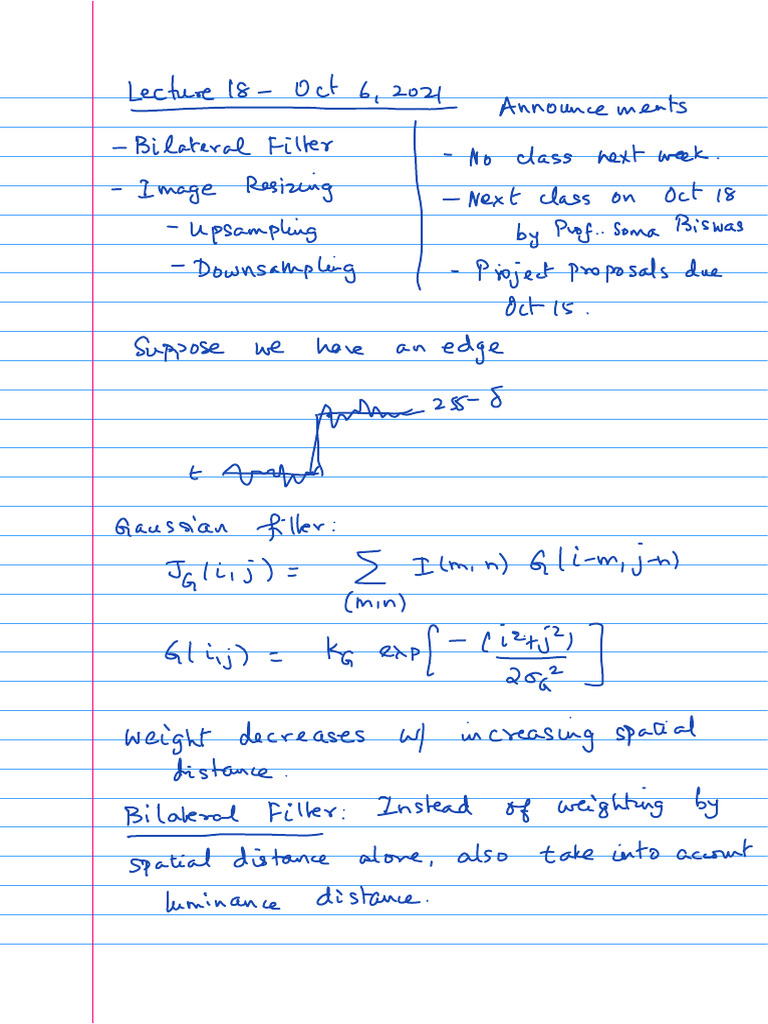 Lecture 18 - Oct 6, 2021
- Bilateral Filter
- Image Resizing
- Upsampling
- Downsampling
Announcements
- No class next week.
- Next class on Oct 18
by Prof.. Soma Biswas
- Project proposals due
Oct 15.
Suppose we have an edge
255 - δ
t
Gaussian filter:
J_G(i,j) = Σ_(m,n) I(m,n) G(i-m, j-n)
G(i,j) = K_G exp[-(i²+j²)/2σ_G²]
Weight decreases w/ increasing spatial
distance.
Bilateral Filter: Instead of weighting by
spatial distance alone, also take into account
luminance distance.